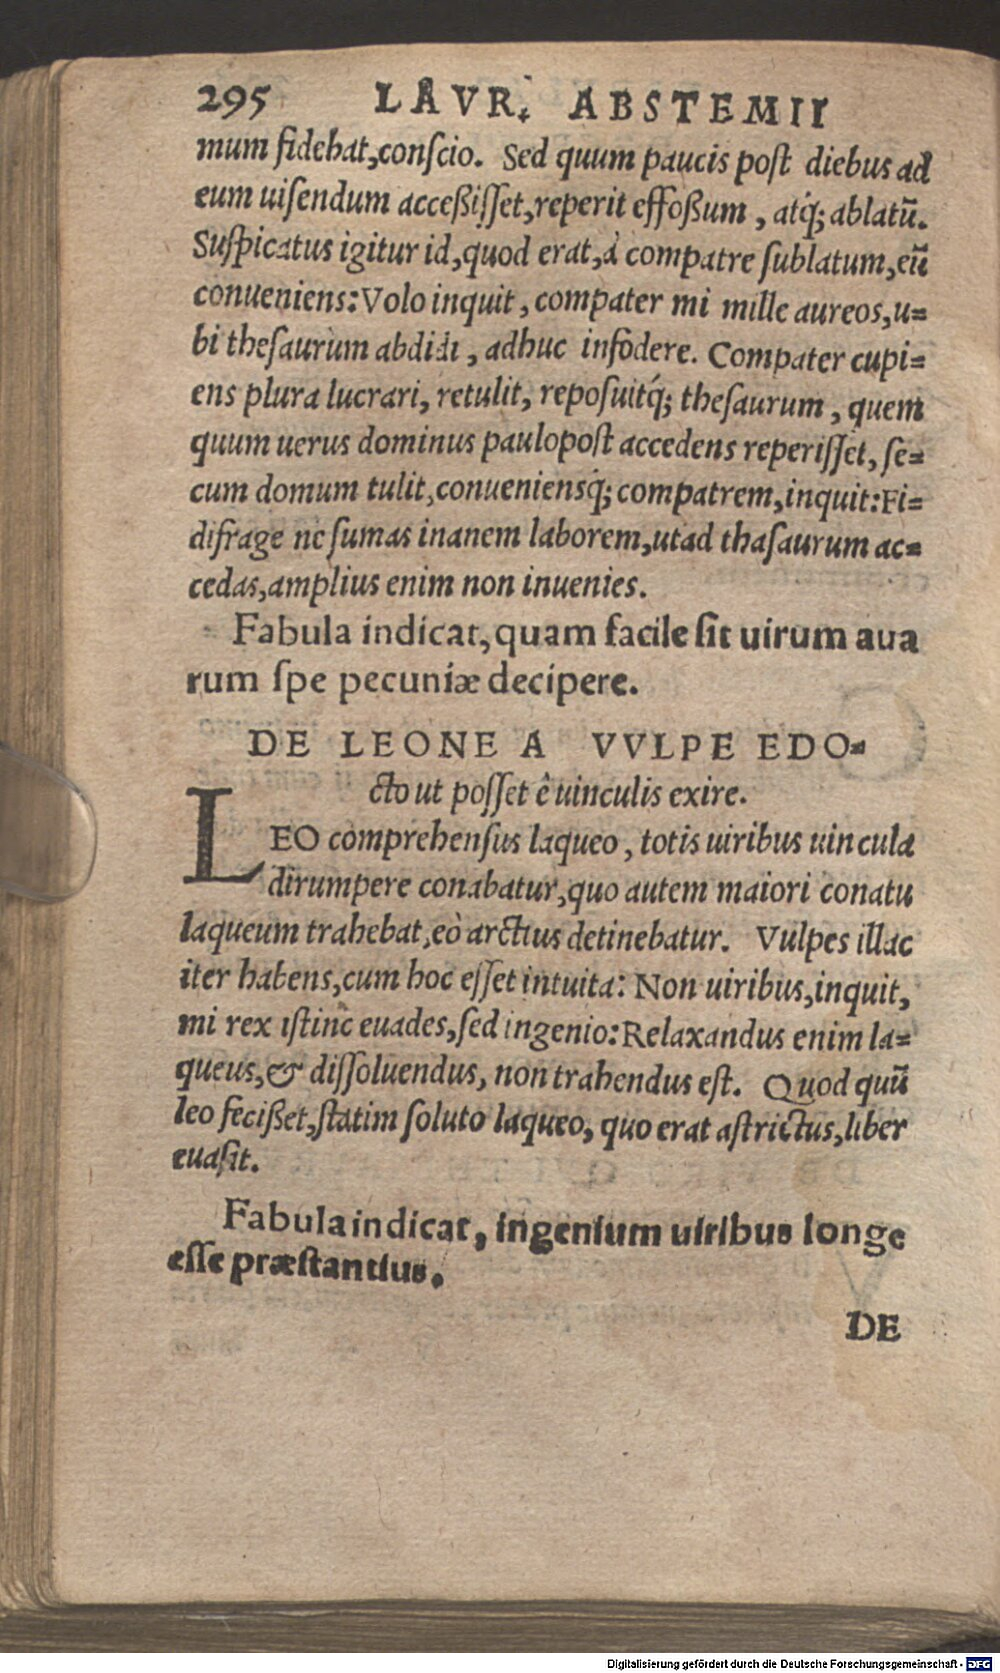 295 LAVR. ABSTEMII
mum fidebat,conſcio. Sed quum paucis poſt diebus ad
eum uiſendum acceßiſſet,reperit effoßum , atq́; ablatū.
Suſpicatus igitur id,quod erat,à compatre ſublatum,eū
conueniens:Volo inquit , compater mi mille aureos,u=
bi theſaurum abdidi , adhuc infodere. Compater cupi=
ens plura lucrari, retulit, repoſuitq́; theſaurum , quem
quum uerus dominus paulopoſt accedens reperiſſet, ſe=
cum domum tulit,conueniensq́; compatrem,inquit:Fi=
difrage ne ſumas inanem laborem,utad thaſaurum ac=
cedas,amplius enim non inuenies.
Fabula indicat,quam facile ſit uirum aua
rum ſpe pecuniæ decipere.
DE LEONE A VVLPE EDO=
cto ut poſſet ê uinculis exire.
LEO comprehenſus laqueo , totis uiribus uincula
dirumpere conabatur,quo autem maiori conatu
laqueum trahebat,eò arctius detinebatur. Vulpes illac
iter habens,cum hoc eſſet intuita: Non uiribus,inquit,
mi rex iſtinc euades,ſed ingenio:Relaxandus enim la=
queus,& diſſoluendus, non trahendus eſt. Quod quū
leo fecißet,ſtatim ſoluto laqueo, quo erat aſtrictus,liber
euaſit.
Fabula indicat, ingenium uiribus longe
eſſe præſtantius.
DE
Digitalisierung gefördert durch die Deutsche Forschungsgemeinschaft - DFG